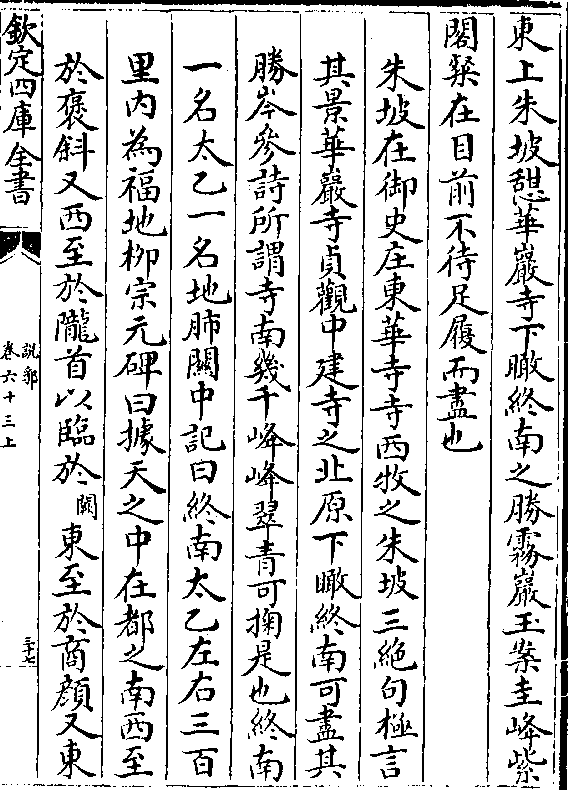 東上朱坡憇華巖寺下瞰終南之勝霧巖玉案圭峰紫
閣粲在目前不待足履而盡也
朱坡在御史庄東華寺寺西牧之朱坡三絶句極言
其景華巖寺貞觀中建寺之北原下瞰終南可盡其
勝岑參詩所謂寺南幾千峰峰翠青可掬是也終南
一名太乙一名地肺關中記曰終南太乙左右三百
里內為福地栁宗元碑曰據天之中在都之南西至
於褒斜又西至於隴首以臨於闗東至於商顔又東
欽定四庫全書
說郛
卷六十三上
三十七